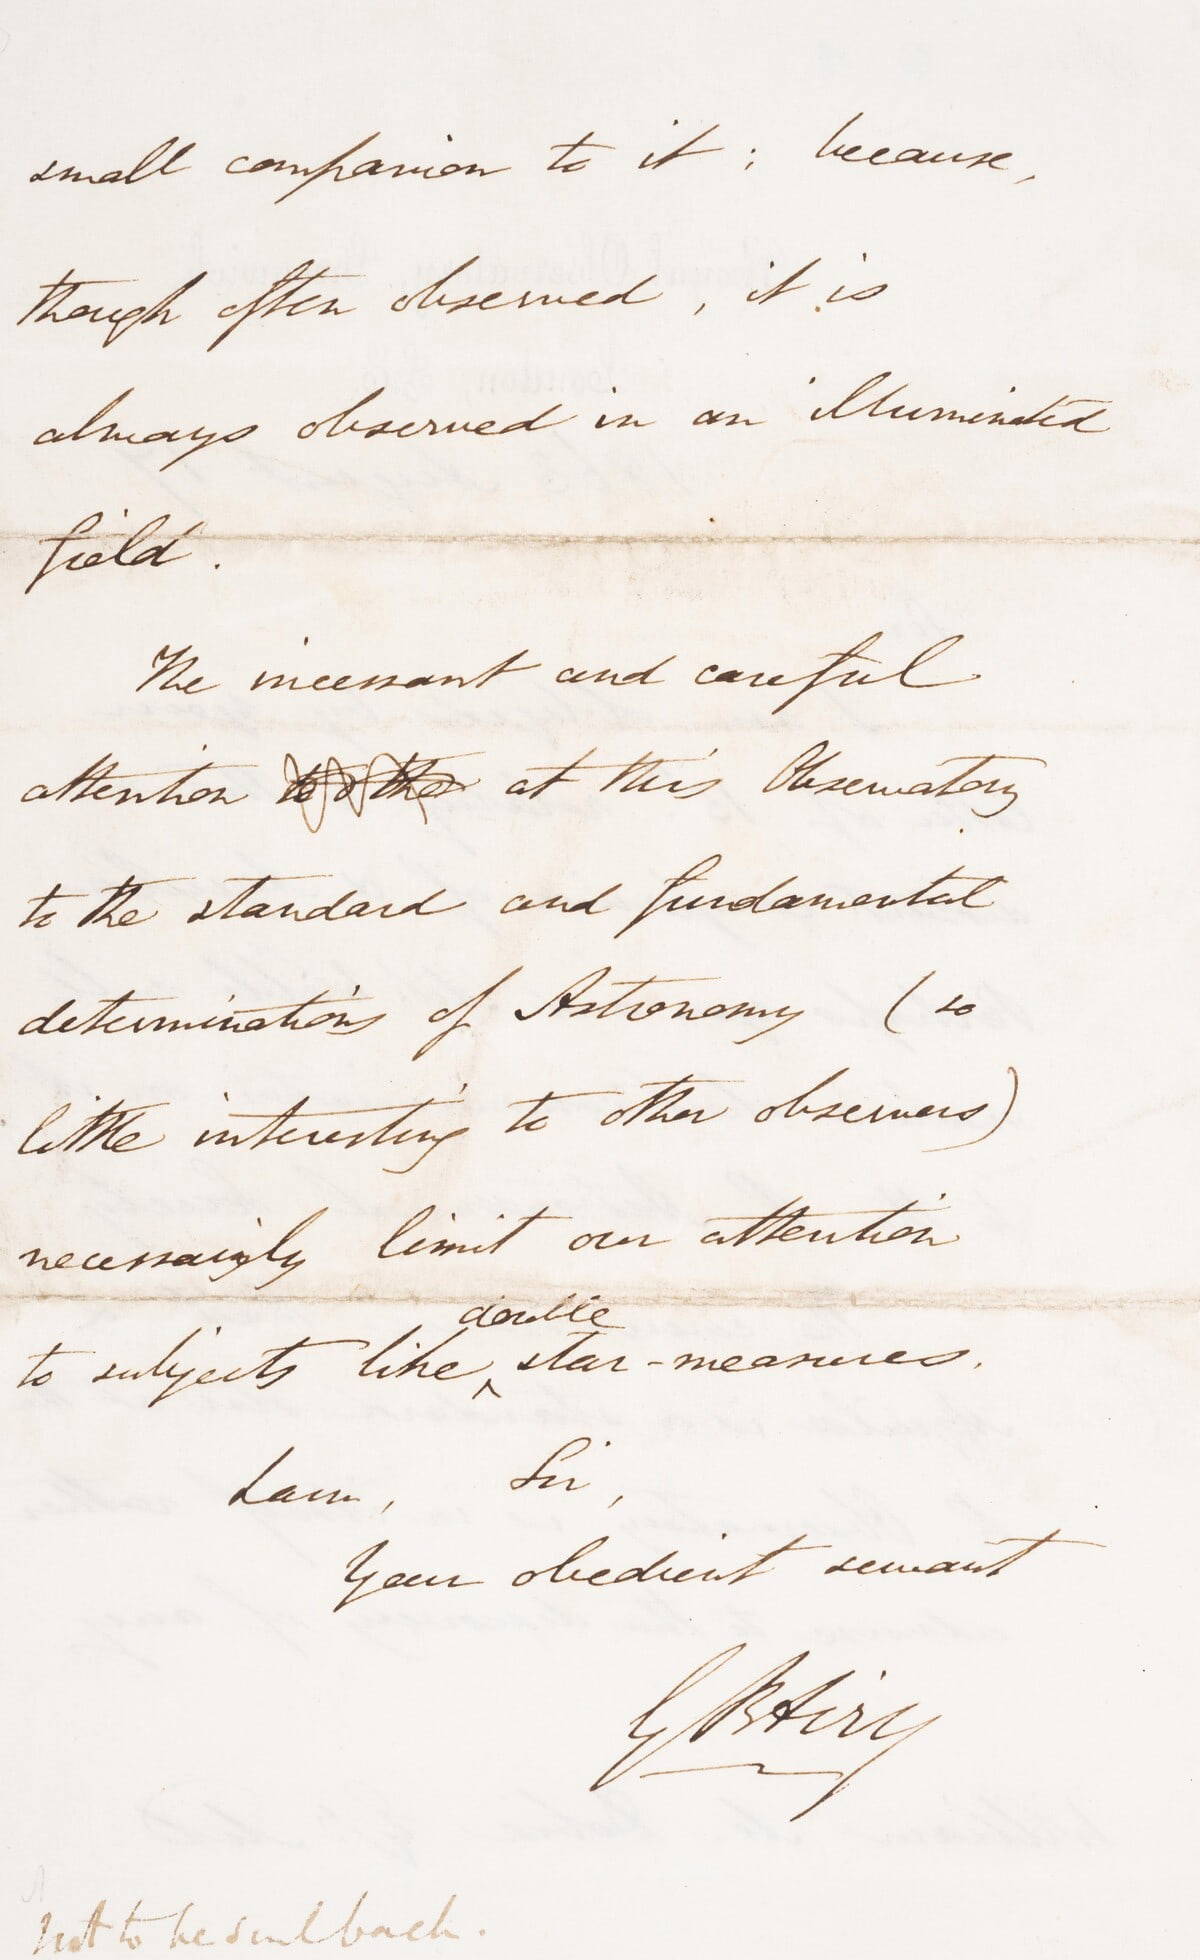 small companion to it ; because,
though often observed , it is
always observed in an illuminated
field .
The incessant and careful
attention at this Observatory
to the standard and fundamental
determinations of Astronomy ( so
little interesting to other observers)
necessarily limit our attention
double
to subjects like ^ star-measures.
I am , Sir ,
Your obedient servant
G B Airy
Not to be sent back .